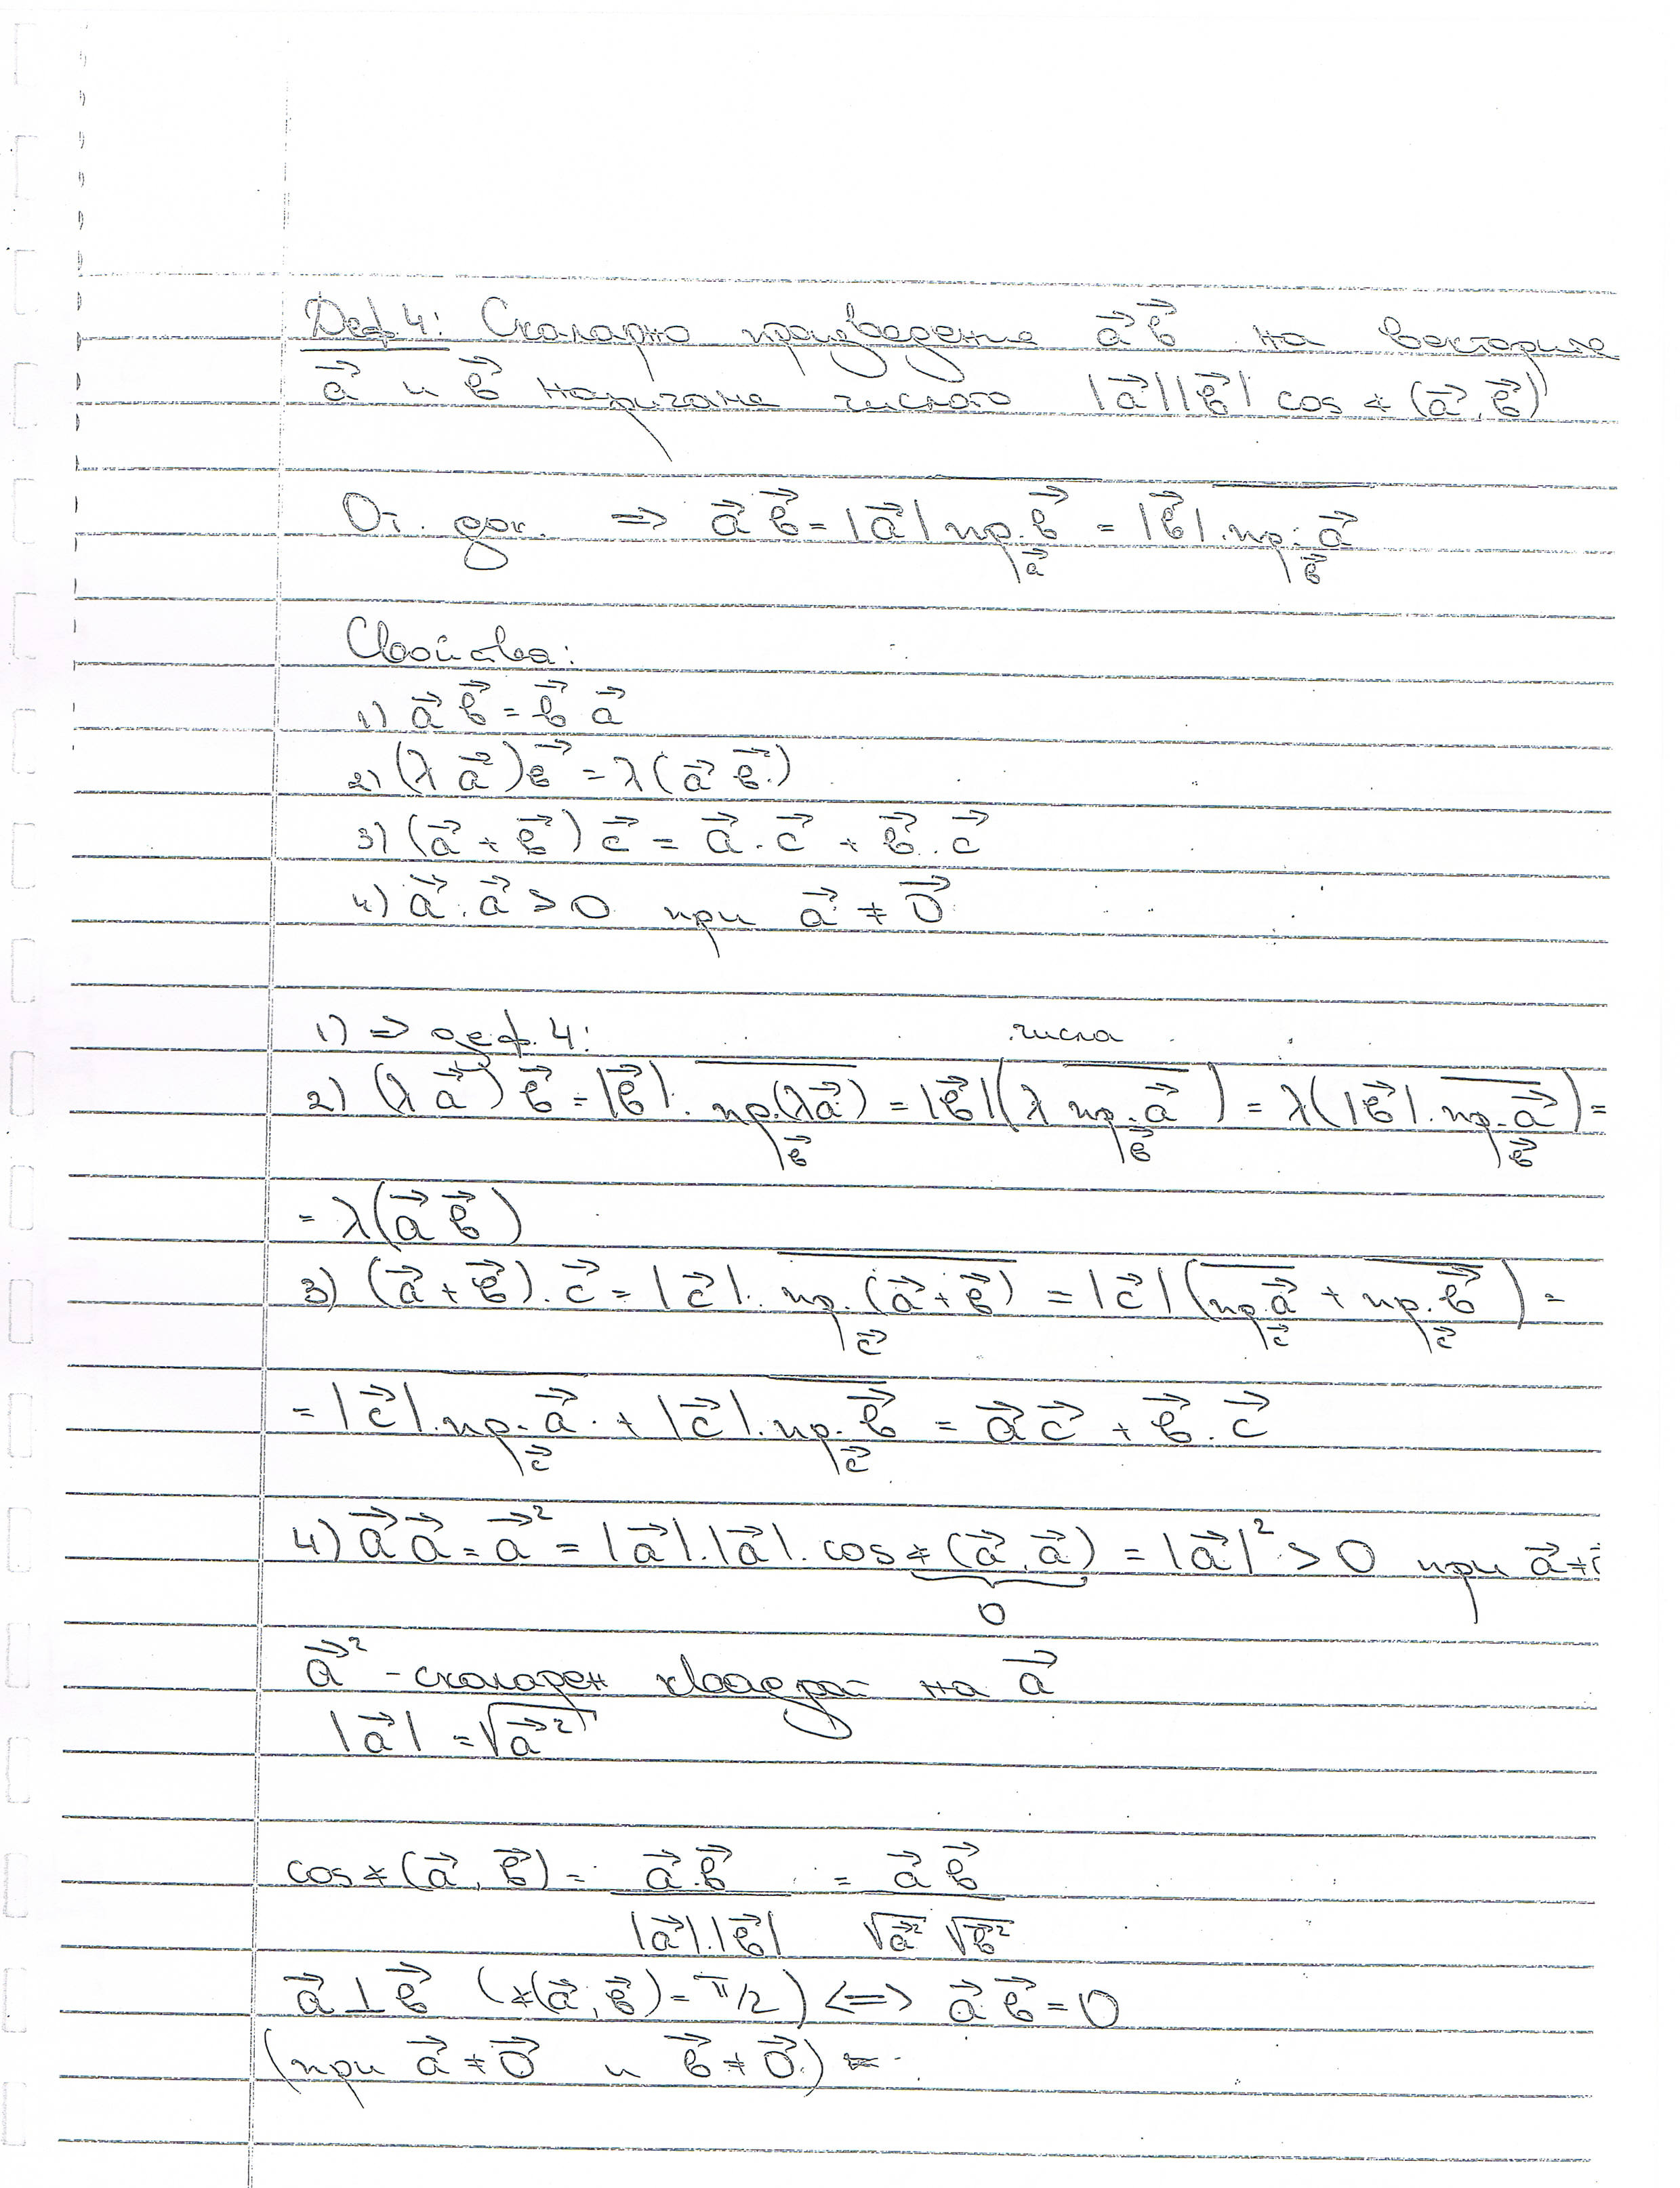 Деф. 4: Скаларно произведение a⃗ b⃗ на векторите
a⃗ и b⃗ наричаме числото |a⃗||b⃗| cos ∢ (a⃗, b⃗)
От деф. => a⃗ b⃗ = |a⃗| пр._a⃗ b⃗ = |b⃗| . пр._b⃗ a⃗
Свойства:
1) a⃗ b⃗ = b⃗ a⃗
2) (λ a⃗) b⃗ = λ (a⃗ b⃗)
3) (a⃗ + b⃗) c⃗ = a⃗ . c⃗ + b⃗ . c⃗
4) a⃗ . a⃗ > 0 при a⃗ ≠ 0⃗
1) => деф. 4: числа
2) (λ a⃗) b⃗ = |b⃗| . пр._b⃗ (λa⃗) = |b⃗| (λ пр._b⃗ a⃗) = λ(|b⃗| . пр._b⃗ a⃗) =
= λ(a⃗ b⃗)
3) (a⃗ + b⃗) . c⃗ = |c⃗| . пр._c⃗ (a⃗ + b⃗) = |c⃗| (пр._c⃗ a⃗ + пр._c⃗ b⃗) =
= |c⃗| . пр._c⃗ a⃗ + |c⃗| . пр._c⃗ b⃗ = a⃗ c⃗ + b⃗ . c⃗
4) a⃗ a⃗ = a⃗² = |a⃗| . |a⃗| . cos ∢ (a⃗, a⃗) = |a⃗|² > 0 при a⃗ ≠
0
a⃗² - скаларен квадрат на a⃗
|a⃗| = √a⃗²
cos ∢ (a⃗, b⃗) = a⃗ . b⃗ / |a⃗| . |b⃗| = a⃗ b⃗ / √a⃗² √b⃗²
a⃗ ⊥ b⃗ (∢(a⃗, b⃗) = π/2) <=> a⃗ b⃗ = 0
(при a⃗ ≠ 0⃗ и b⃗ ≠ 0⃗)